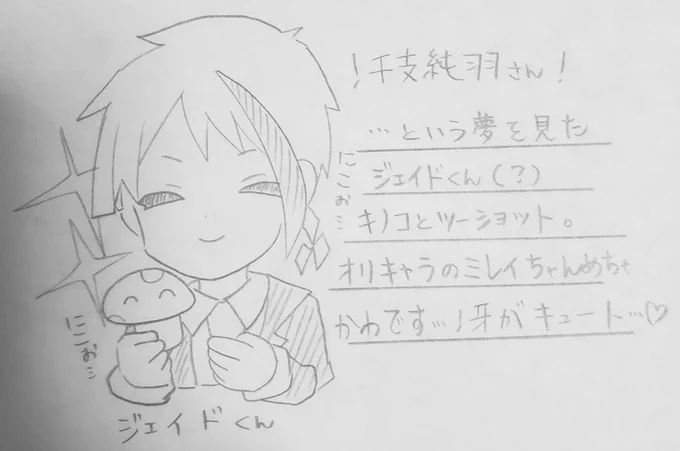 ！干支純羽さん！
…という夢を見た
ジェイドくん(？)
キノコとツーショット。
オリキャラのミレイちゃんめちゃ
かわです…！牙がキュート…♡
にこぉ…
にこぉ…
ジェイドくん